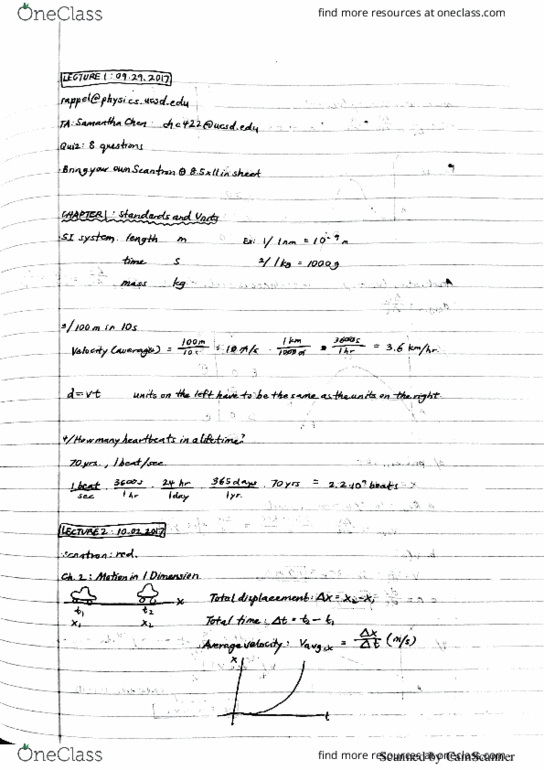 OneClass find more resources at oneclass.com
LECTURE 1: 09.29.2017
rappel@physics.ucsd.edu
TA: Samantha Chen chc422@ucsd.edu
Quiz: 8 questions
Bring your own Scantron 8.5x11 in sheet
CHAPTER 1: Standards and Units
SI system. length m Ex: 1/ 1nm = 10⁻⁹ m
time s 2/ 1kg = 1000g
mass kg
3/ 100 m in 10s
Velocity (average) = 100m/10s = 10 m/s · 1km/1000m · 3600s/1hr = 3.6 km/hr.
d = vt units on the left have to be the same as the units on the right
4/ How many heartbeats in a lifetime?
70 yrs., 1 beat/sec.
1 beat/sec · 3600s/1hr · 24 hr/1day · 365 days/1yr. · 70 yrs = 2.2·10⁹ beats
LECTURE 2: 10.02.2017
scantron: red.
Ch. 2: Motion in 1 Dimension
x Total displacement: Δx = x₂-x₁
t₁ t₂ Total time: Δt = t₂ - t₁
x₁ x₂ Average velocity: Vavg,x = Δx/Δt (m/s)
x
t
OneClass find more resources at oneclass.com
Scanned by CamScanner